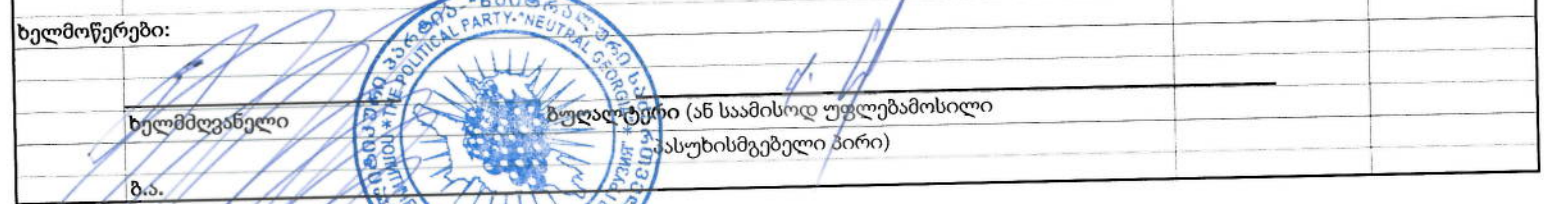 ხელმოწერები:
ხელმძღვანელი
ბუღალტერი (ან საამისოდ უფლებამოსილი
პასუხისმგებელი პირი)
ბ.ა.
THE POLITICAL PARTY-"NEUTRAL GEORGIA"